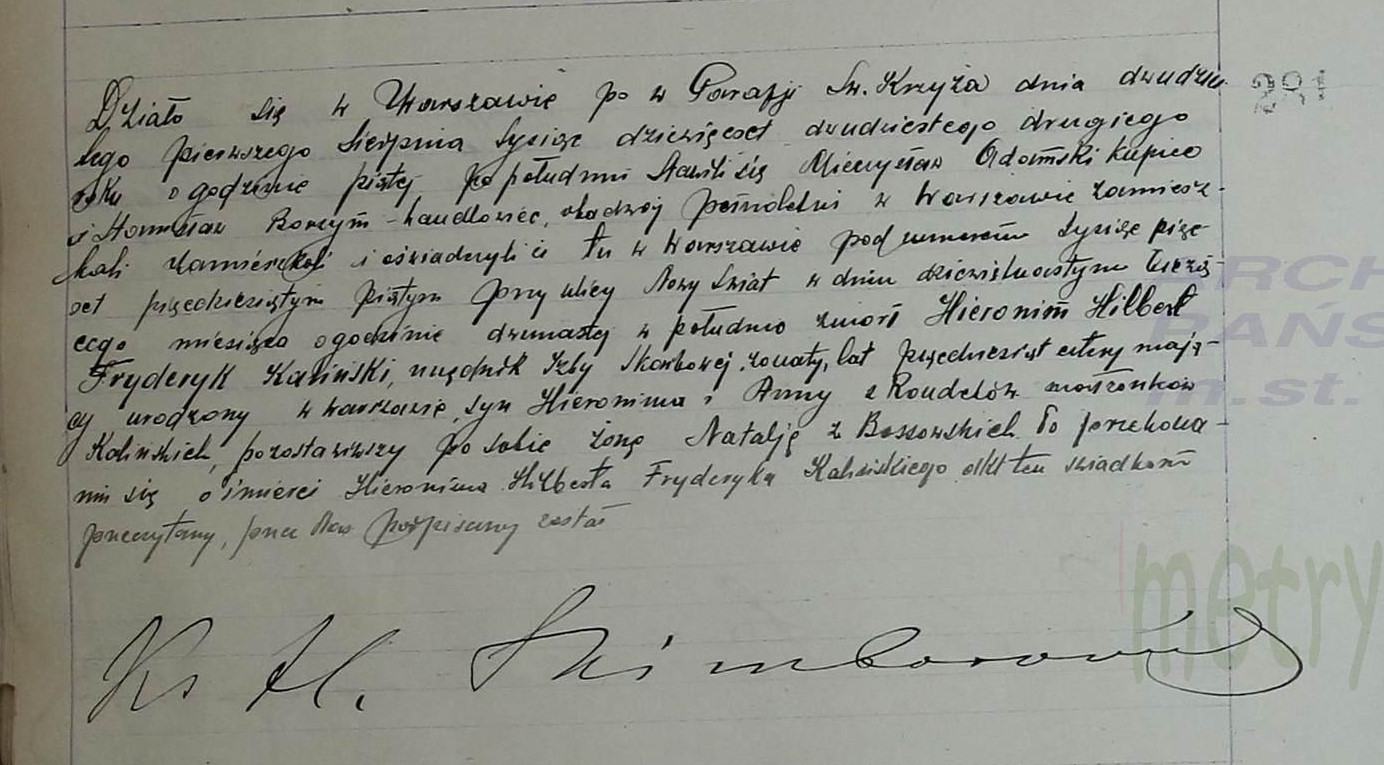 Działo się w Warszawie po w Parafji Św. Krzyża dnia dwudzie
291
tego pierwszego Sierpnia tysiąc dziewięćset dwudziestego drugiego
roku o godzinie piątej po południu Stawili się Mieczysław Adamski kupiec
i Stanisław Borzym handlowiec, obadwaj pełnoletni w Warszawie zamiesz-
kali zamieszkali i oświadczyli iż tu w Warszawie pod numerem tysiąc pięć-
set pięćdziesiątym piątym przy ulicy Nowy Świat w dniu dziewiętnastym bieżą-
cego miesiąca o godzinie dwunastej w południe zmarł Hieronim Hilbert
Fryderyk Kaliński, urzędnik Izby Skarbowej, żonaty, lat pięćdziesiąt cztery mają-
cy urodzony w Warszawie, syn Hieronima i Anny z Roudelów małżonków
Kalińskich, pozostawiwszy po sobie żonę Natalję z Bossowskich. Po przekona-
niu się o śmierci Hieronima Hilberta Fryderyka Kalińskiego akt ten świadkom
przeczytany, przez Nas podpisany został
Ks H.
ARCH
PAŃS
m.st.
metry